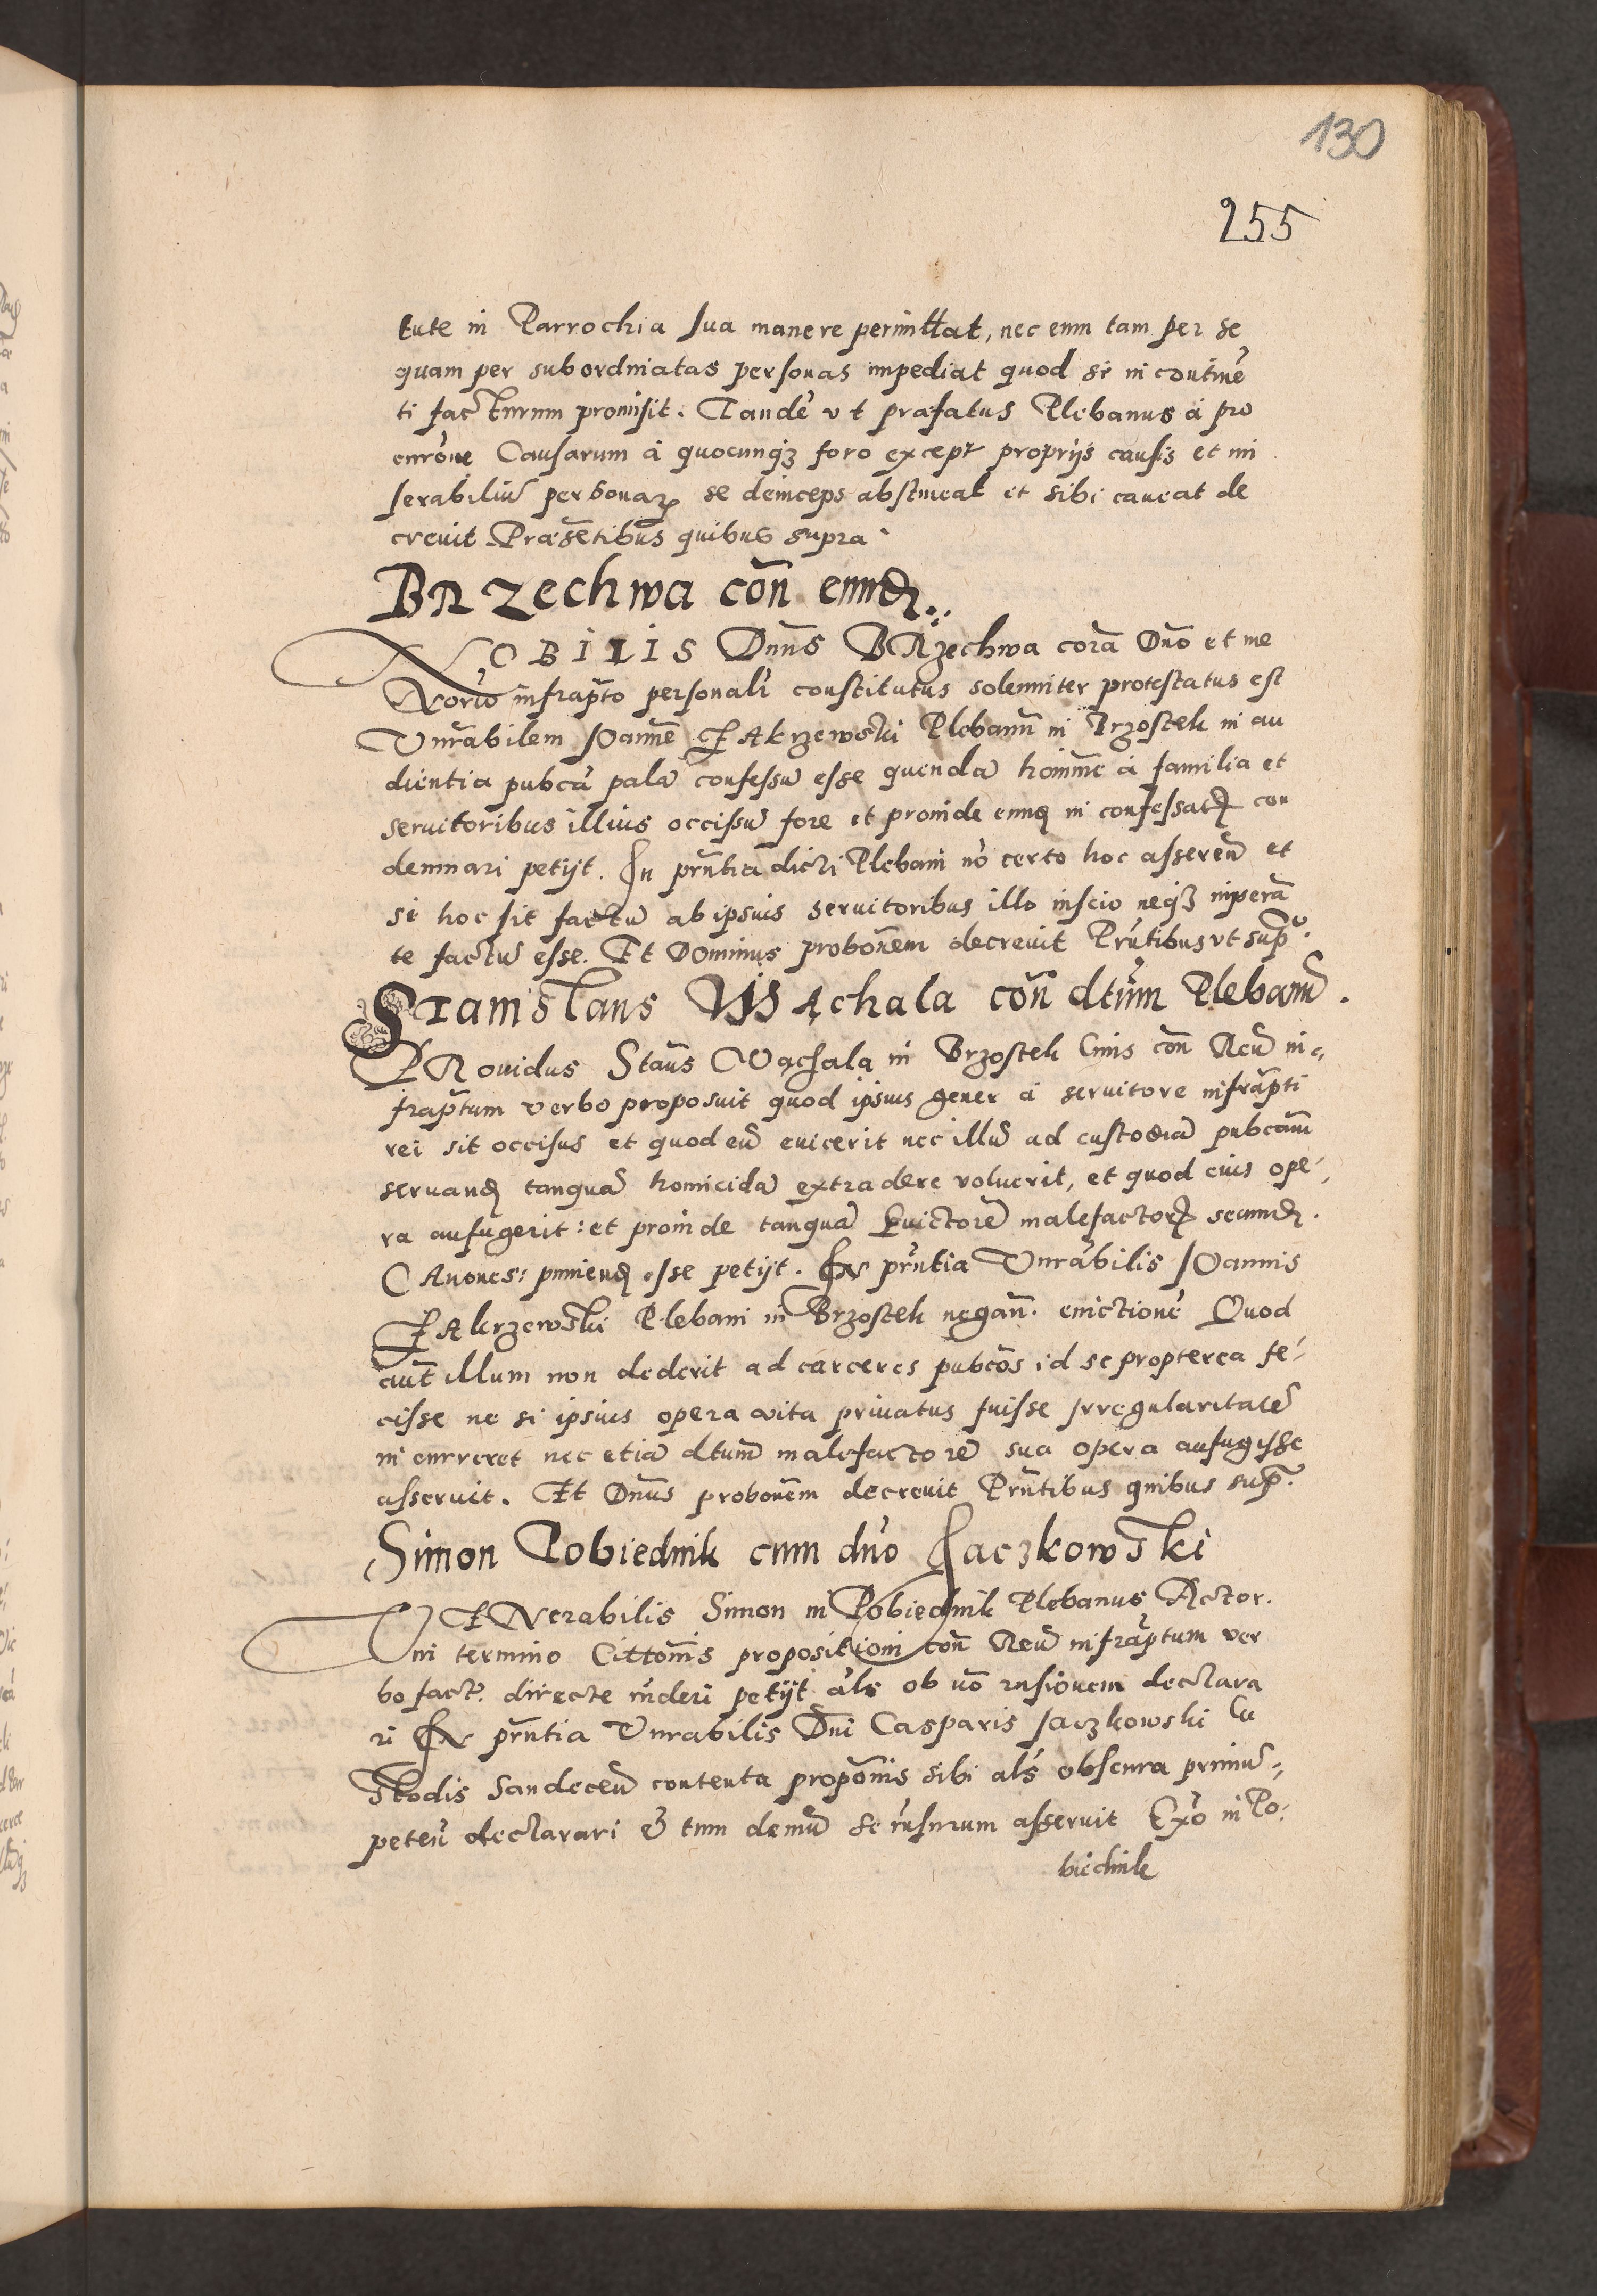 130
255
tute in Parrochia sua manere permittat, nec eum tam per se
quam per subordinatas personas impediat quod se in contine͂
ti facturum promisit. Tandē vt præfatus Plebanus à pro
curōne Causarum à quocunqꝫ foro except proprijs causis et mi
serabiliū personaꝝ se deinceps abstineat et sibi caueat de
creuit Præsētibus quibus supra
BRzechwa con̄ eund.
NOBILIS Dn̄us BRzechwa corā Dn̄o et me
Norio infrapto personalr̄ constitutus solenniter protestatus est
Vnrābilem Joannē ZAkrzewski Plebanū in Brzostek in au
dientia pubca palā confessū esse quendā hominē à familia et
seruitoribus illius occissū fore et proinde eund in confessatꝫ con
demnari petijt. In pn̄tia dicti Plebani nō certo hoc asserēn et
si hoc sit factū ab ipsius seruitoribus illo inscio neqꝫ imperā
te factū esse. Et Dominus probonem decreuit Pn̄tibus vt sup.
STanislaus WAchala con̄ dtum Plebanū.
PRouidus Stan̄s Wąchala in Brzostek Ciuis con̄ Reū in
fraptum verbo proposuit quod ipsius gener à seruitore infrapti
rei sit occisus et quod eū euicerit nec illū ad custodiā pubcam
seruand tanquā homicidā extradere voluerit, et quod eius ope
ra aufugerit: et proinde tanquā Euictorē malefactorꝫ secund.
CAnones: puniend esse petijt. In pn̄tia Vnrābilis Joannis
ZAkrzewski Plebani in Brzostek negan̄. euictionē Quod
aut̄ illum non dederit ad carceres pubcos id se propterea fe
cisse ne si ipsius opera vita priuatus fuisse Irregularitatē
incurreret nec etiā dtum malefactorē sua opera aufugisse
asseruit. Et Dn̄us probonem decreuit Pn̄tibus quibus sup.
Simon Pobiednik cum dn̄o Jaczkowski
VENerabilis Simon in Pobiednik Plebanus Actor.
in termino Cittonis propositioni con̄ Reū infraptum ver
bo fact. directe rn̄deri petijt als ob nō rn̄sionem declara
ri In pn̄tia Vnrābilis Dn̄i Casparis Jaczkowski Cu
stodis Sandeceñ contenta proponis sibi als obscura primū
peteñ declarari & tum demū se rn̄surum asseruit Exo in Po
biednik